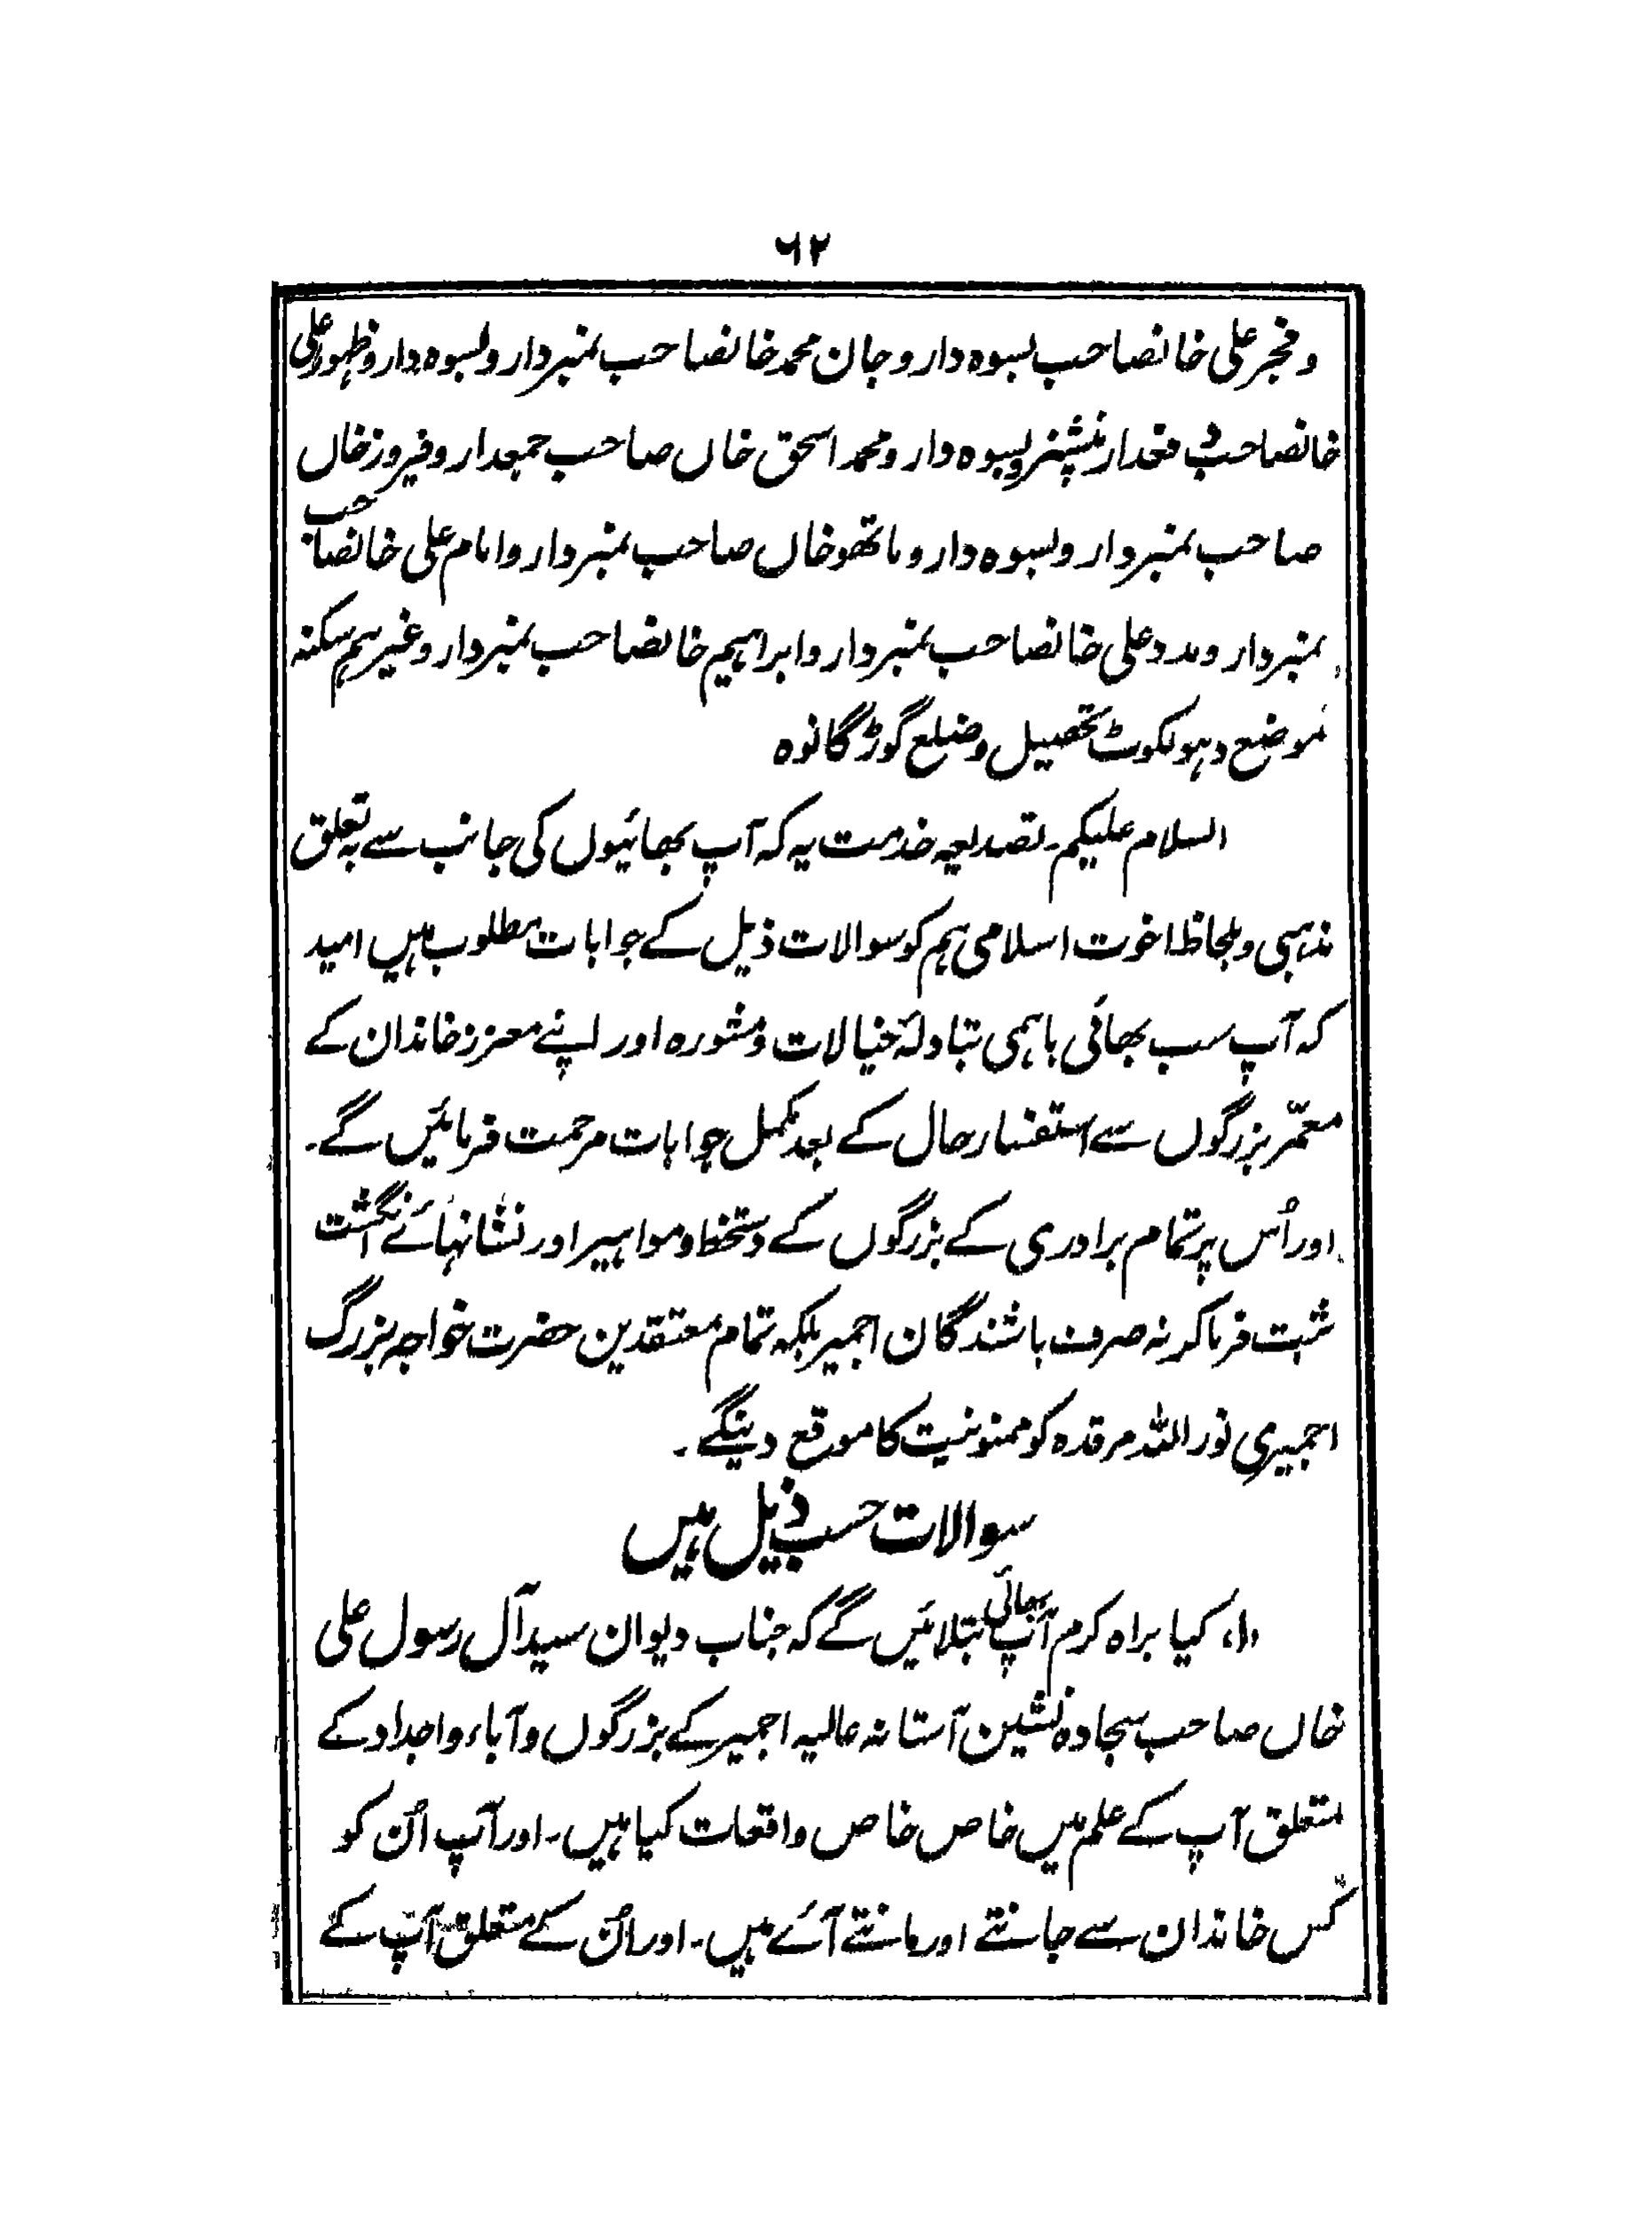 ۶۲
و فجر علی خانصاحب بسوہ دار و جان محمد خانصاحب نمبردار و بسوہ دار و ظہور علی
خانصاحب دفعدار پنشنر و بسوہ دار و محمد اسحق خاں صاحب جمعدار و فیروز خاں
صاحب نمبردار و بسوہ دار و ماتھو خاں صاحب نمبردار و امام علی خانصاحب
نمبردار و مدد علی خانصاحب نمبردار و ابراہیم خانصاحب نمبردار وغیرہم سکنہ
موضع دہولکوٹ تحصیل و ضلع گوڑگانوہ
السلام علیکم۔ تصدیعہ خدمت یہ کہ آپ بھائیوں کی جانب سے بہ تعلق
مذہبی و بلحاظ اخوت اسلامی ہم کو سوالات ذیل کے جوابات مطلوب ہیں امید
کہ آپ سب بھائی باہمی تبادلۂ خیالات و مشورہ اور اپنے معزز خاندان کے
معمّر بزرگوں سے استفسار حال کے بعد مکمل جوابات مرحمت فرمائیں گے۔
اور اُس پر تمام برادری کے بزرگوں کے دستخط و مواہیر اور نشانہائے انگشت
ثبت فرما کر نہ صرف باشندگان اجمیر بلکہ تمام معتقدین حضرت خواجہ بزرگ
اجمیری نور اللہ مرقدہ کو ممنونیت کا موقع دینگے۔
سوالات حسب ذیل ہیں
(۱) کیا براہ کرم آپ بھائی بتلائیں گے کہ جناب دیوان سید آل رسول علی
خاں صاحب سجادہ نشین آستانہ عالیہ اجمیر کے بزرگوں و آباء و اجداد کے
متعلق آپ کے علم میں خاص خاص واقعات کیا ہیں۔ اور آپ اُن کو
کس خاندان سے جانتے اور مانتے آئے ہیں۔ اور اُن کے متعلق آپ کے